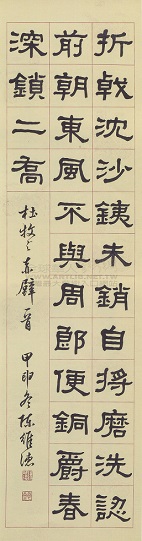 折戟沈沙鐵未銷自將磨洗認
前朝東風不與周郎便銅爵春
深鎖二喬
杜牧之赤壁一首 甲申冬 陳維德